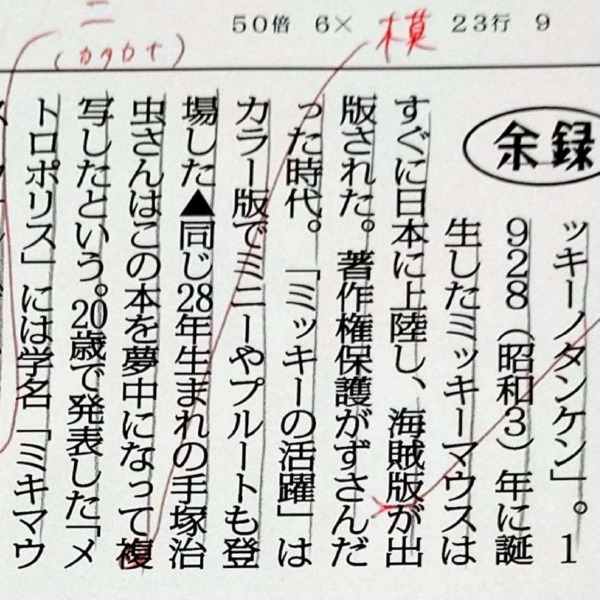 50倍 6× 23行 9
模
ニ
(カタカナ)
余録
ッキーノタンケン」。1
928(昭和3)年に誕
生したミッキーマウスは
すぐに日本に上陸し、海賊版が出
版された。著作権保護がずさんだ
った時代。「ミッキーの活躍」は
カラー版でミニーやプルートも登
場した▲同じ28年生まれの手塚治
虫さんはこの本を夢中になって複
写したという。20歳で発表した「メ
トロポリス」には学名「ミキマウ